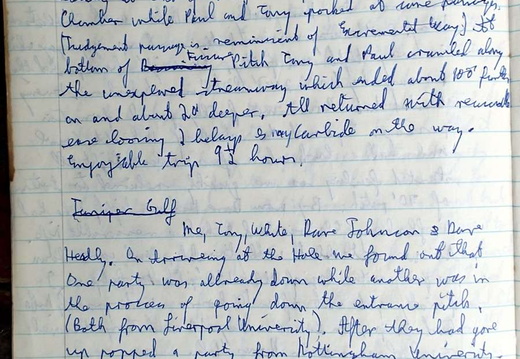 Chamber while Paul and Tony poked at some passages.
[Judgement passage is reminiscent of Excremental Way] At
bottom of Fissure Pitch Tony and Paul crawled along
the unexplored streamway which ended about 100' further
on and about 20' deeper. All returned with
ease loosing 1 belays & my carbide on the way.
Enjoyable trip 9½ hours.
Juniper Gulf
Me, Tony, White, Dave Johnson & Dave
Headly. On arriving at the Hole we found out that
One party was allready down while another was in
the process of going down the entrance pitch.
(Both from Liverpool University). After they had gone
up popped a party from Nottingham University.